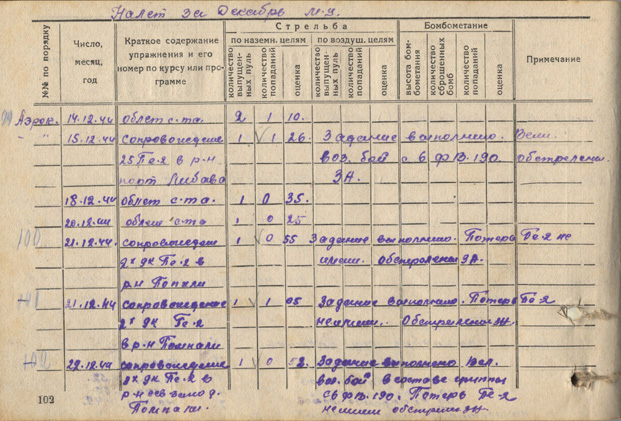 Налет за Декабрь м-ц.
№№ по порядку
Число, месяц, год
Краткое содержание упражнения и его номер по курсу или программе
Стрельба
по наземн. целям
по воздуш. целям
количество выпущенных пуль
количество попаданий
оценка
количество выпущенных пуль
количество попаданий
оценка
Бомбометание
высота бомбометания
количество сброшенных бомб
количество попаданий
оценка
Примечание
Аэрок. 14.12.44 облет с-та. 2 1 10.
" 15.12.44 сопровождение 1 1 26. Задание выполнено. Вели
25 Пе-2 в р-н воз. бой с 6 ФВ-190. обстреляны
порт Либава ЗА.
18.12.44 облет с-та. 1 0 35.
20.12.44 облет с-та 1 0 25
100 21.12.44 сопровожден 1 0 55 Задание выполнено. Потерь Пе-2 не
Пе-2 в имели. Обстреляны ЗА.
р-н
101 21.12.44 Сопровождение 1 1 05 Задание выполнено. Потерь Пе-2
Пе-2 не имели. Обстреляны ЗА.
в р-н
102 22.12.44 сопровождение 1 0 Задание выполнено Вел.
Пе-2 в воз. бой в составе группы
р-н ФВ-190. Потерь Пе-2
не имели обстреляны ЗА
102